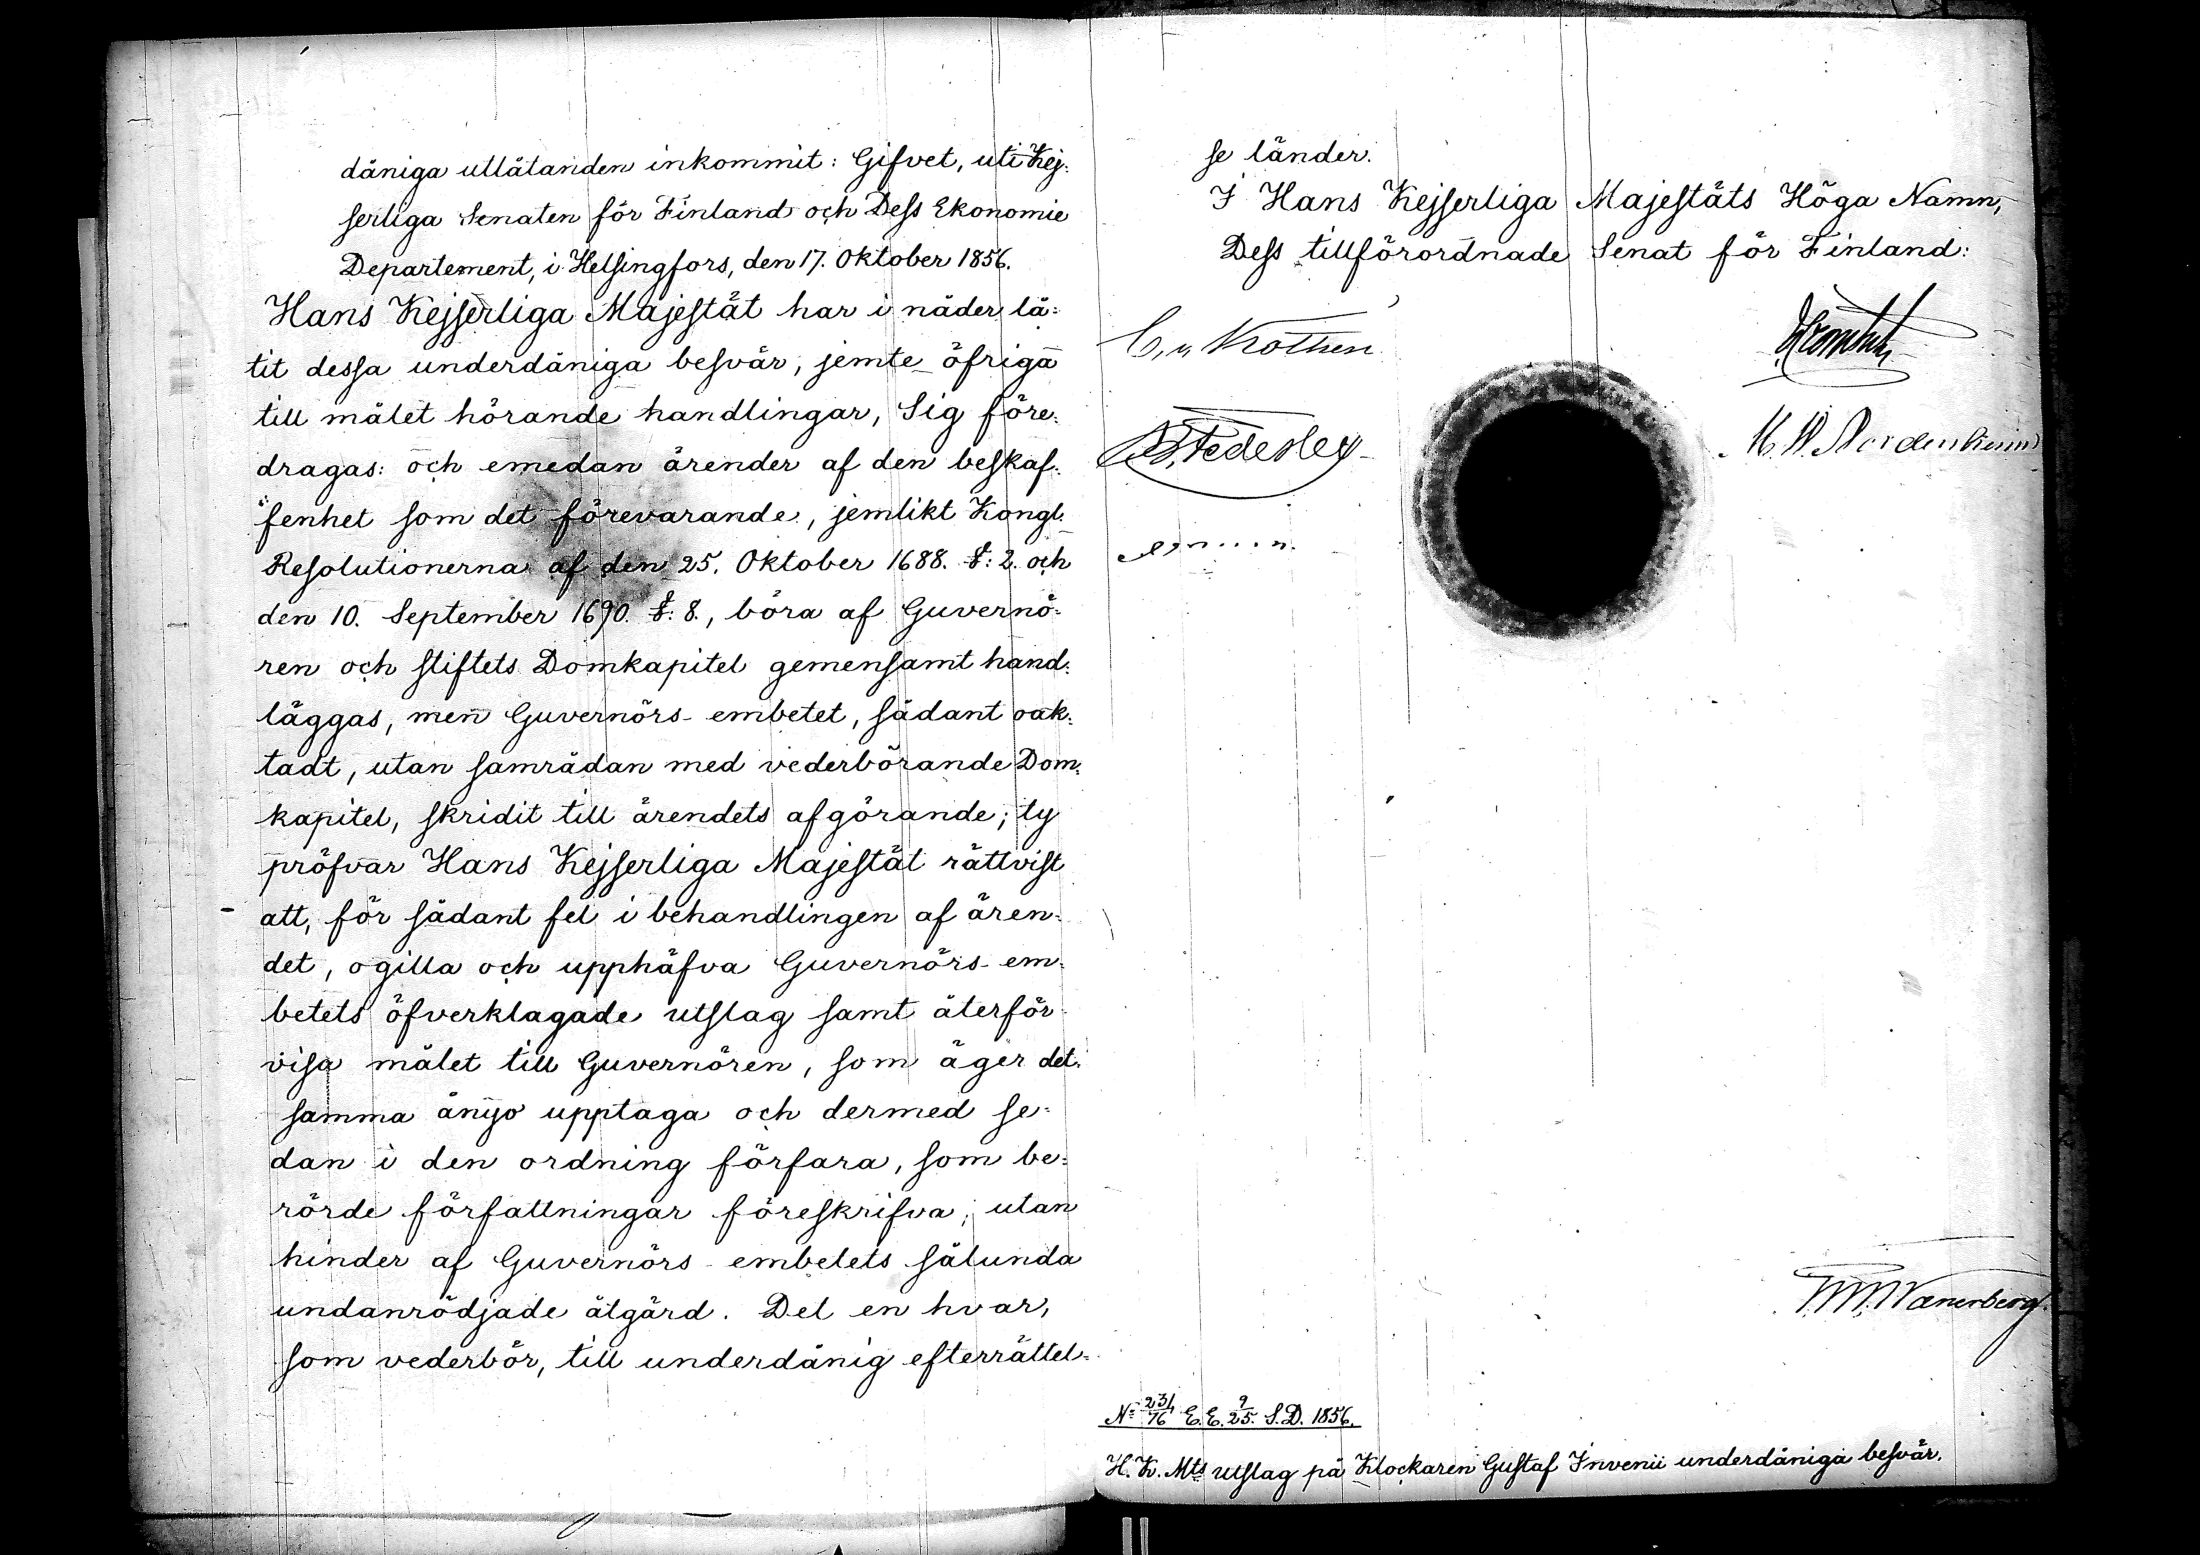 dåniga utlåtanden inkommit: Gifvet, uti Kej-
serliga Senaten för Finland och Dess Ekonomie
Departement, i Helsingfors, den 17. Oktober 1856.
Hans Kejserliga Majestät har i nåder lå-
tit dessa underdåniga besvär, jemte öfriga
till målet hörande handlingar, Sig före-
dragas: och emedan ärender af den beskaf-
fenhet som det förevarande, jemlikt Kongl.
Resolutionerna af den 25. Oktober 1688. §: 2. och
den 10. September 1690. §: 8., böra af Guvernö-
ren och stiftets Domkapitel gemensamt hand-
läggas, men Guvernörs-embetet, sådant oak-
tadt, utan samrådan med vederbörande Dom-
kapitel, skridit till ärendets afgörande; ty
pröfvar Hans Kejserliga Majestät rättvist
att, för sådant fel i behandlingen af ären-
det, ogilla och upphäfva Guvernörs-em-
betets öfverklagade utslag samt återför-
visa målet till Guvernören, som äger det-
samma ånyo upptaga och dermed se-
dan i den ordning förfara, som be-
rörde författningar föreskrifva, utan
hinder af Guvernörs-embetets sålunda
undanrödjade åtgärd. Det en hvar,
som vederbör, till underdånig efterrättel-
se länder.
I Hans Kejserliga Majestäts Höga Namn,
Dess tillförordnade Senat för Finland:
C. v Kothen
B. Federley
Nordenheim
Wanerberg.
No 231/76 E. E. 9/25. S. D. 1856.
H. K. Mts utslag på Klockaren Gustaf Invenii underdåniga besvär.